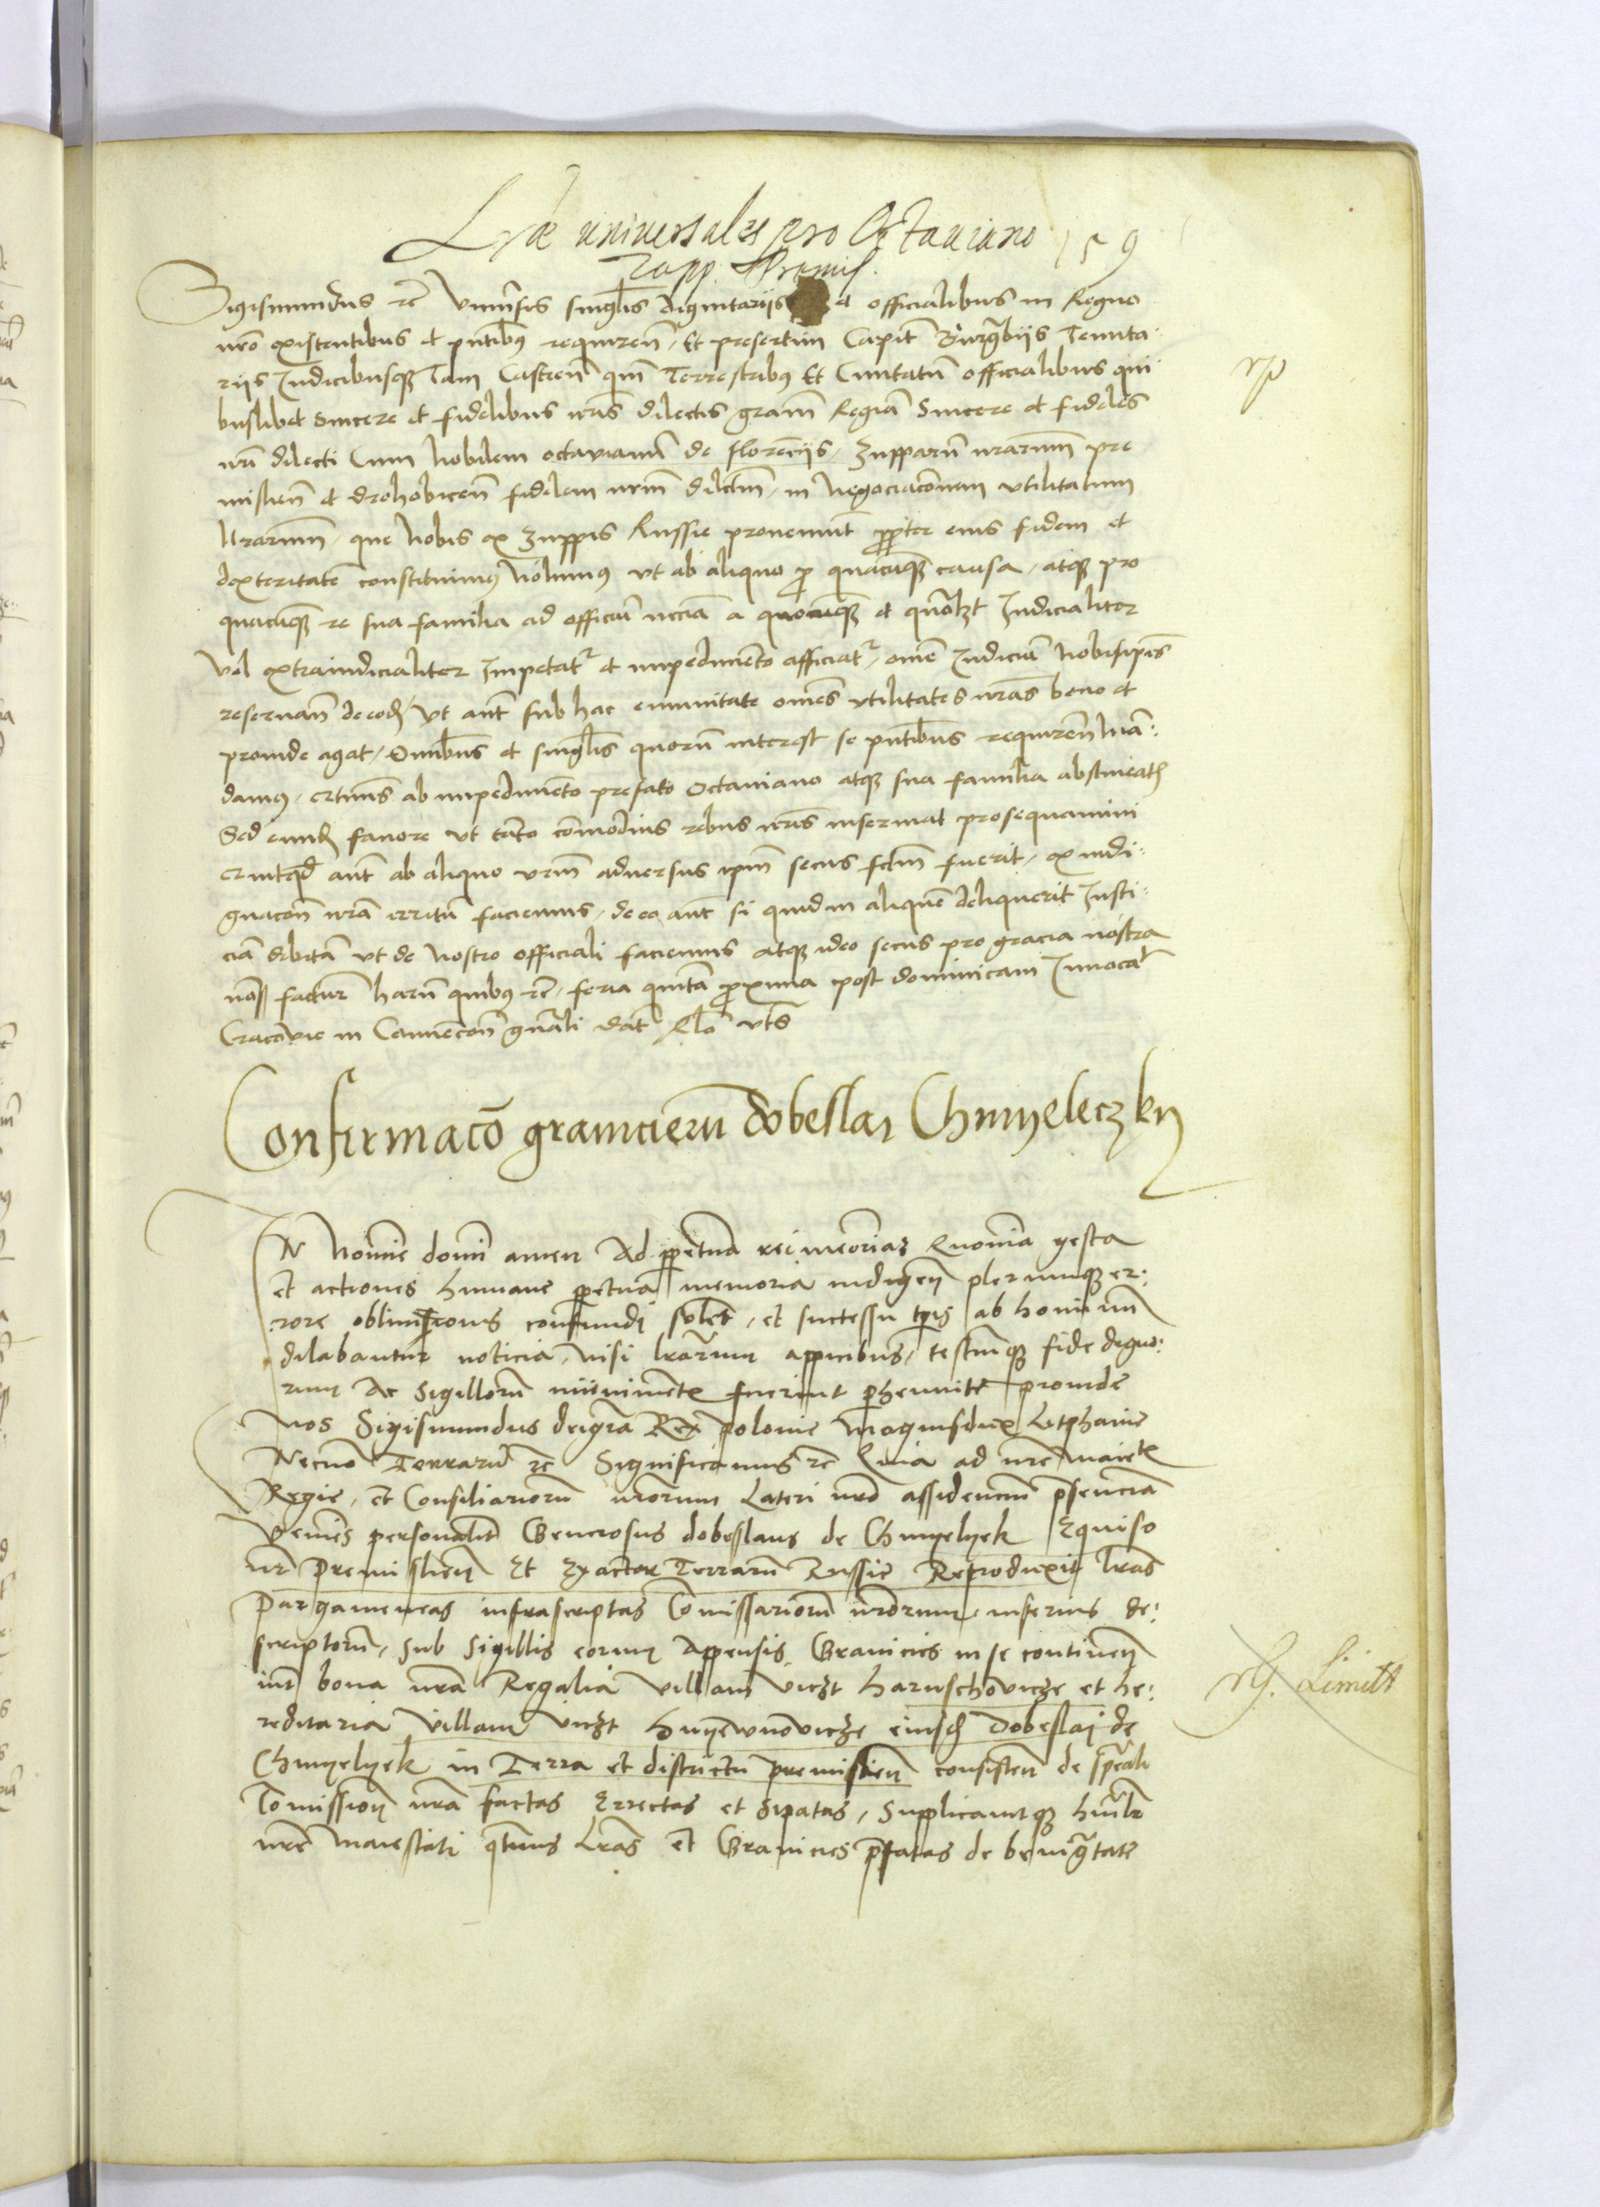 Lrae universales pro Octaviano 159
Zupp. Premisl.
Sigismundus rex Universis singulis dignitariis et officialibus in Regno
nro existentibus et pntibus requiren, Et presertim Capit Burgrabiis Tenuta
riis Judicibusque Tam Castren qm Terrestribus Et Civitatum officialibus qui
buslibet Sincere et fidelibus nris dilectis gram Regiam Sincere et fideles
nri dilecti Cum Nobilem octavianum de florenciis, Zupparum nrarum pre
mislien et drohobicen fidelem nrm dilctm, in Negociaconem utilitatum
Nrarum, que Nobis ex Zuppis Russie proveniunt propter eius fidem et
dexteritatem constituimus Nolumus ut ab aliquo pro quacumque causa, atque pro
quacumque re sua familia ad officium a quocumque et Judicialiter
Vel extraiudicialiter Impetatr et impedimento afficiatr, omne Judicium Nobisipsis
reservan de eod, Ut aut sub hac emunitate omnes utilitates nras bene et
proinde agat, Omnibus et singulis quorum interest se pntibus requiren Man:
damus, ab impedimento prefato Octaviano atque sua familia abstineatis
Sed eundem favore ut tanto commodius rebus nris inserviat prosequamini
aut ab aliquo vrm adversus ipm secus fctm fuerit, ex indi:
gnacon nra irritum faciemus, de eo aut si quid in aliquem deliquerit Justi:
ciam debitam ut de Nostro officiali faciemus atque ideo secus pro gracia nostra
non factur harum quibus rc, feria quinta proxima post dominicam Invocavit
Cracovie in Convencon gnrali dat Rlo uts
Confirmaco granicierum dobeslai Chmyeleczky
IN Nomine domini amen Ad perpetuam rei memoriam Quoniam gesta
et actiones humane perpetua memoria indigen plerumque er:
rore oblivionis confundi solent, et successu tpris ab hominum
dilabantur noticia, nisi lrarum appicibus, testiumque fide digno:
rum Ac Sigillorum munimento fuerint perhennita proinde
Nos Sigismundus dei gra Rex polonie Magnusdux Litphanie
Necno Terrarum rc Significamus rc Quia ad nre Maiets
Regie, et Consiliariorum nrorum Lateri nro assidencium psenciam
Veniens personalit Generosus dobeslaus de Chmyelyek Equiso
nr Premislien Et Exactor Terrarum Russie Reproduxit lras
Pargameneas infrascriptas Comissariorum nrorum, inferius de:
scriptorum, Sub Sigillis eorum Appensis, Granicies in se continen
int bona nra Regalia Villam viczt harnschovicze et he:
reditaria Villam viczt huyewnovicze eiusd Dobeslai de
Chmyelyek in Terra et districtu premislien consisten de speciali
Comission nra factas Errectas et Sipatas, Supplicavitque humlr
nre Maiestati qtenus Lras et Granicies pfatas de benignitate
rp
rG. Limitt